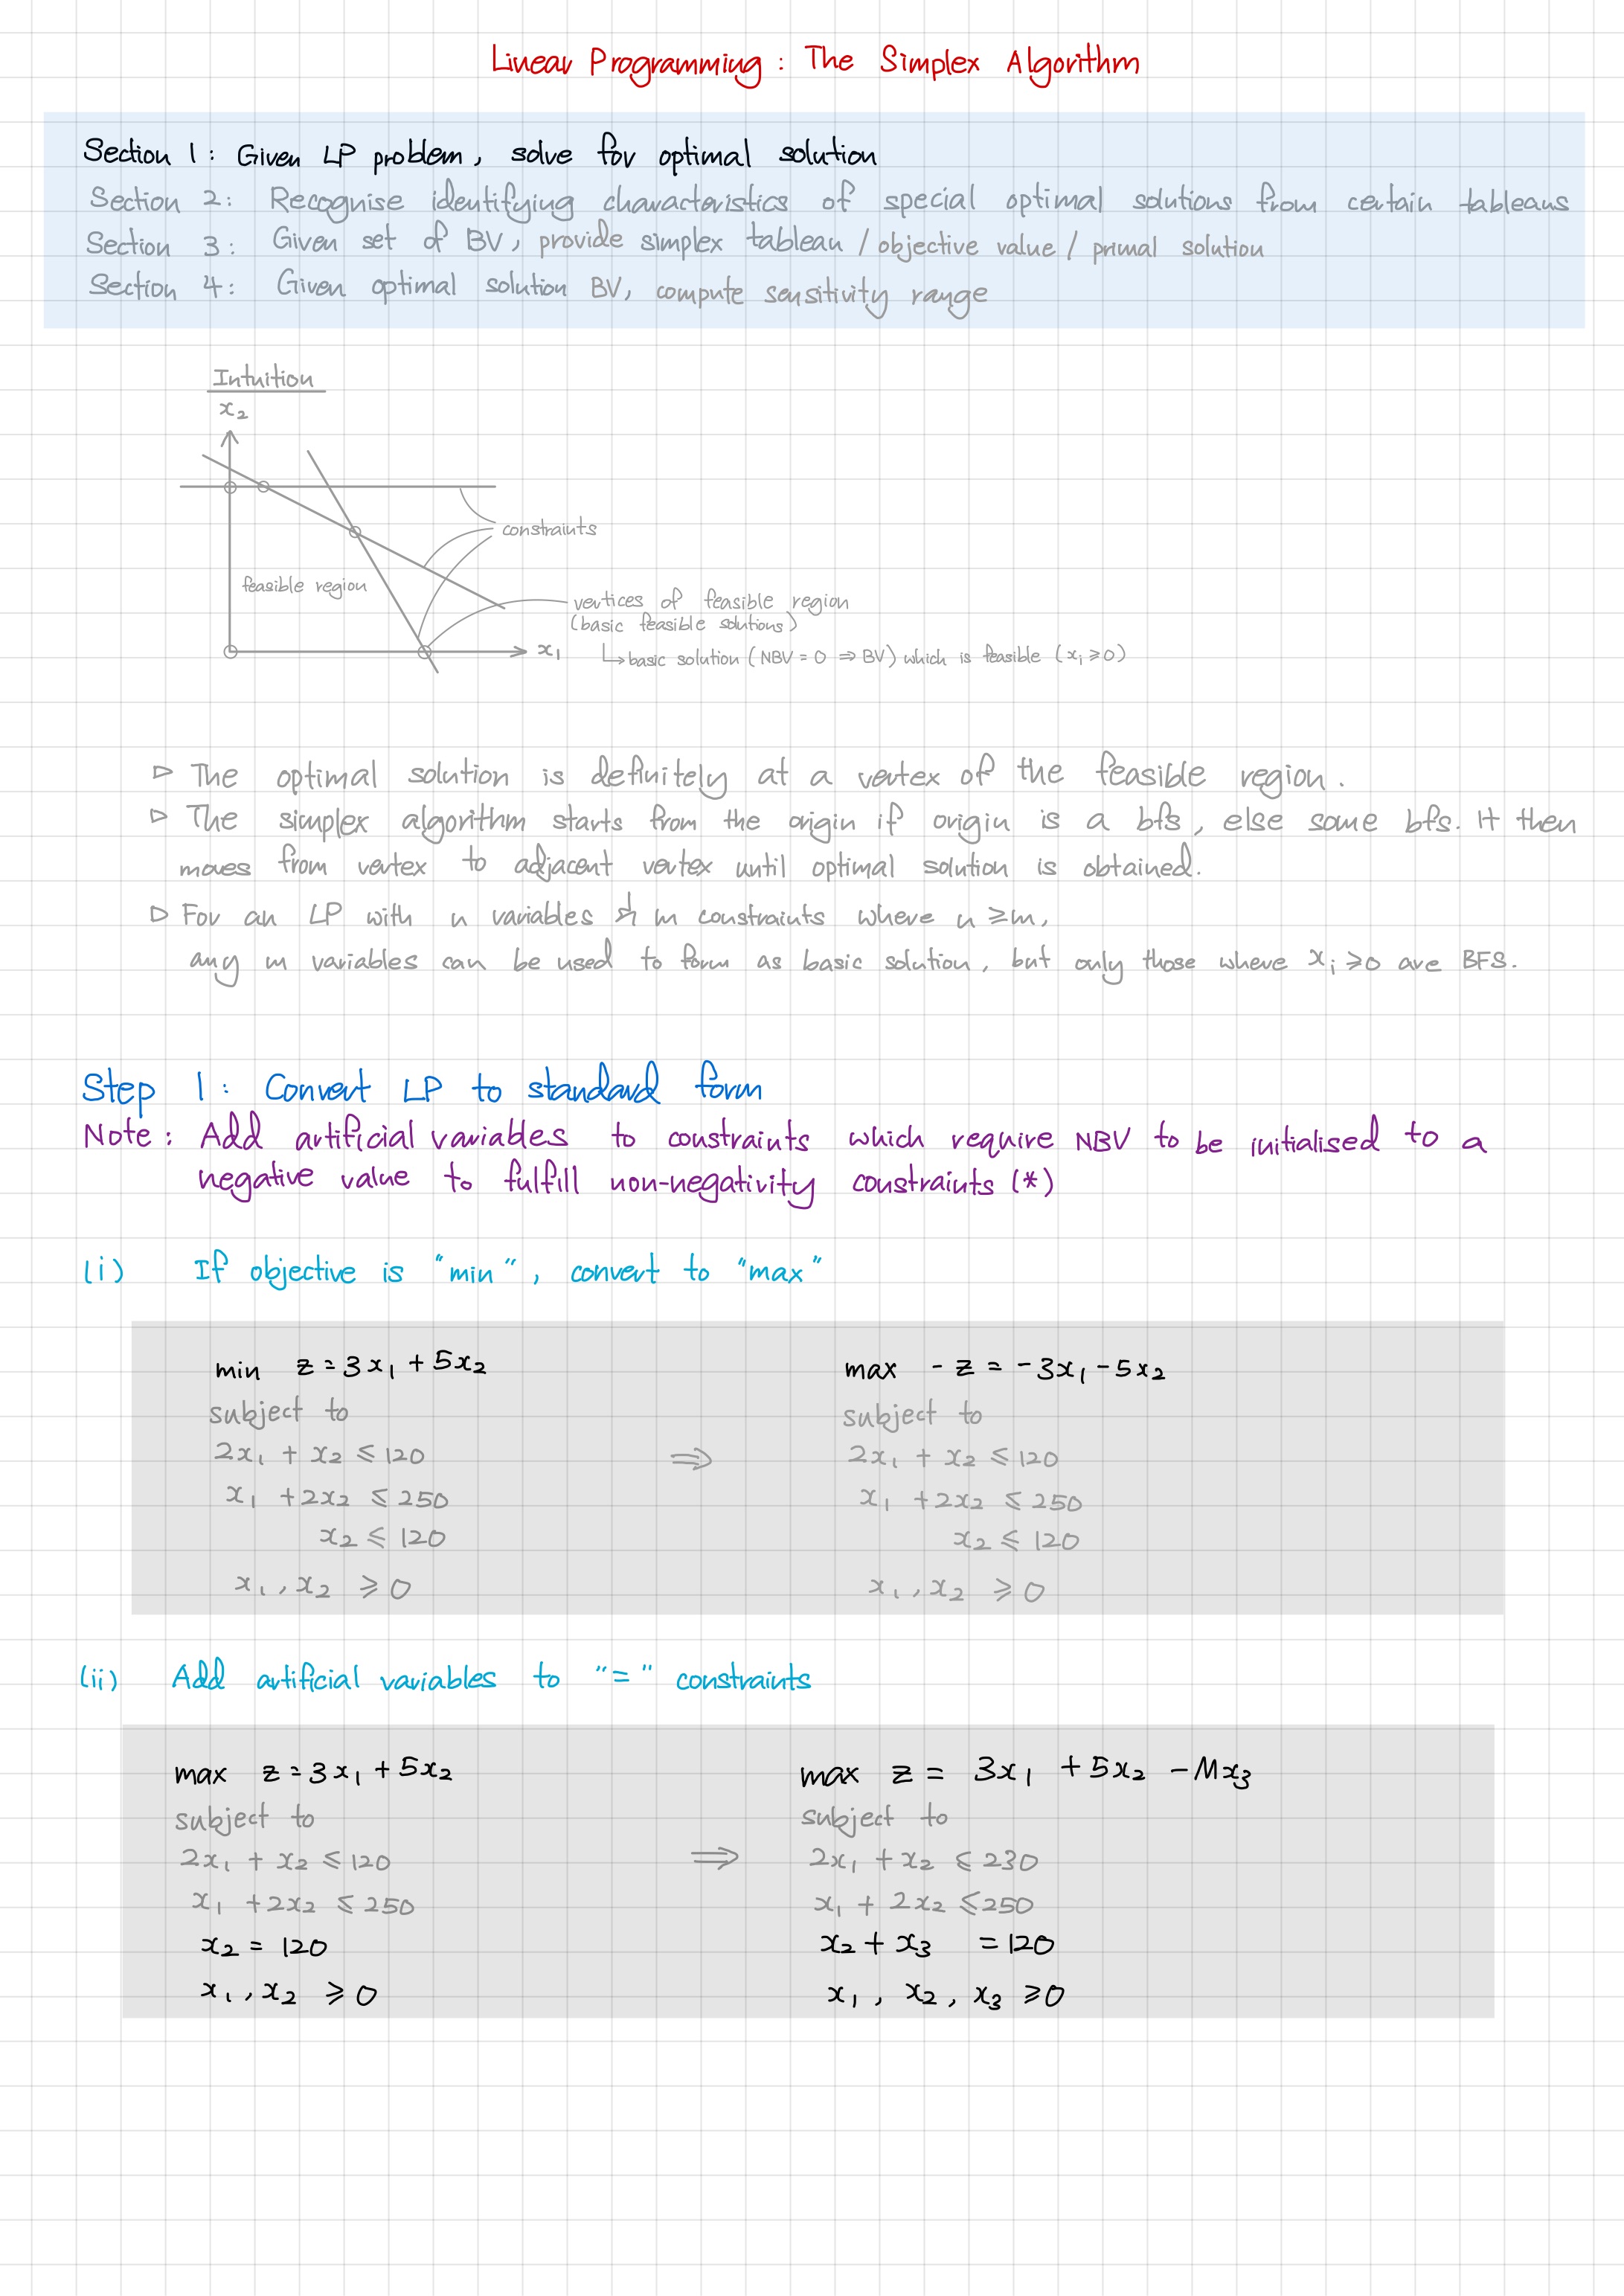 Linear Programming : The Simplex Algorithm
Section 1 : Given LP problem, solve for optimal solution
Section 2 : Recognise identifying characteristics of special optimal solutions from certain tableaus
Section 3 : Given set of BV, provide simplex tableau / objective value / primal solution
Section 4 : Given optimal solution BV, compute sensitivity range
Intuition
x₂
constraints
feasible region
vertices of feasible region
(basic feasible solutions)
x₁
↳ basic solution (NBV = 0 ⇒ BV) which is feasible (xᵢ ≥ 0)
▷ The optimal solution is definitely at a vertex of the feasible region.
▷ The simplex algorithm starts from the origin if origin is a bfs, else some bfs. It then
moves from vertex to adjacent vertex until optimal solution is obtained.
▷ For an LP with n variables & m constraints where n ≥ m,
any m variables can be used to form as basic solution, but only those where xᵢ ≥ 0 are BFS.
Step 1 : Convert LP to standard form
Note : Add artificial variables to constraints which require NBV to be initialised to a
negative value to fulfill non-negativity constraints (*)
(i) If objective is "min", convert to "max"
min z = 3x₁ + 5x₂
subject to
2x₁ + x₂ ≤ 120
x₁ + 2x₂ ≤ 250
x₂ ≤ 120
x₁, x₂ ≥ 0
⇒
max - z = -3x₁ - 5x₂
subject to
2x₁ + x₂ ≤ 120
x₁ + 2x₂ ≤ 250
x₂ ≤ 120
x₁, x₂ ≥ 0
(ii) Add artificial variables to "=" constraints
max z = 3x₁ + 5x₂
subject to
2x₁ + x₂ ≤ 120
x₁ + 2x₂ ≤ 250
x₂ = 120
x₁, x₂ ≥ 0
⇒
max z = 3x₁ + 5x₂ - Mx₃
subject to
2x₁ + x₂ ≤ 230
x₁ + 2x₂ ≤ 250
x₂ + x₃ = 120
x₁, x₂, x₃ ≥ 0